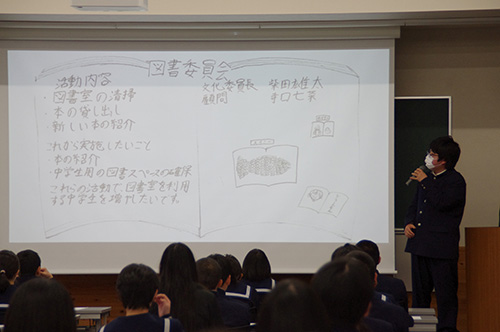 図書委員会
活動内容
・図書室の清掃
・本の貸し出し
・新しい本の紹介
これから実施したいこと
・本の紹介
・中学生用の図書スペースの確保
これらの活動で、図書室を利用
する中学生を増やしたいです。
文化委員長
顧問